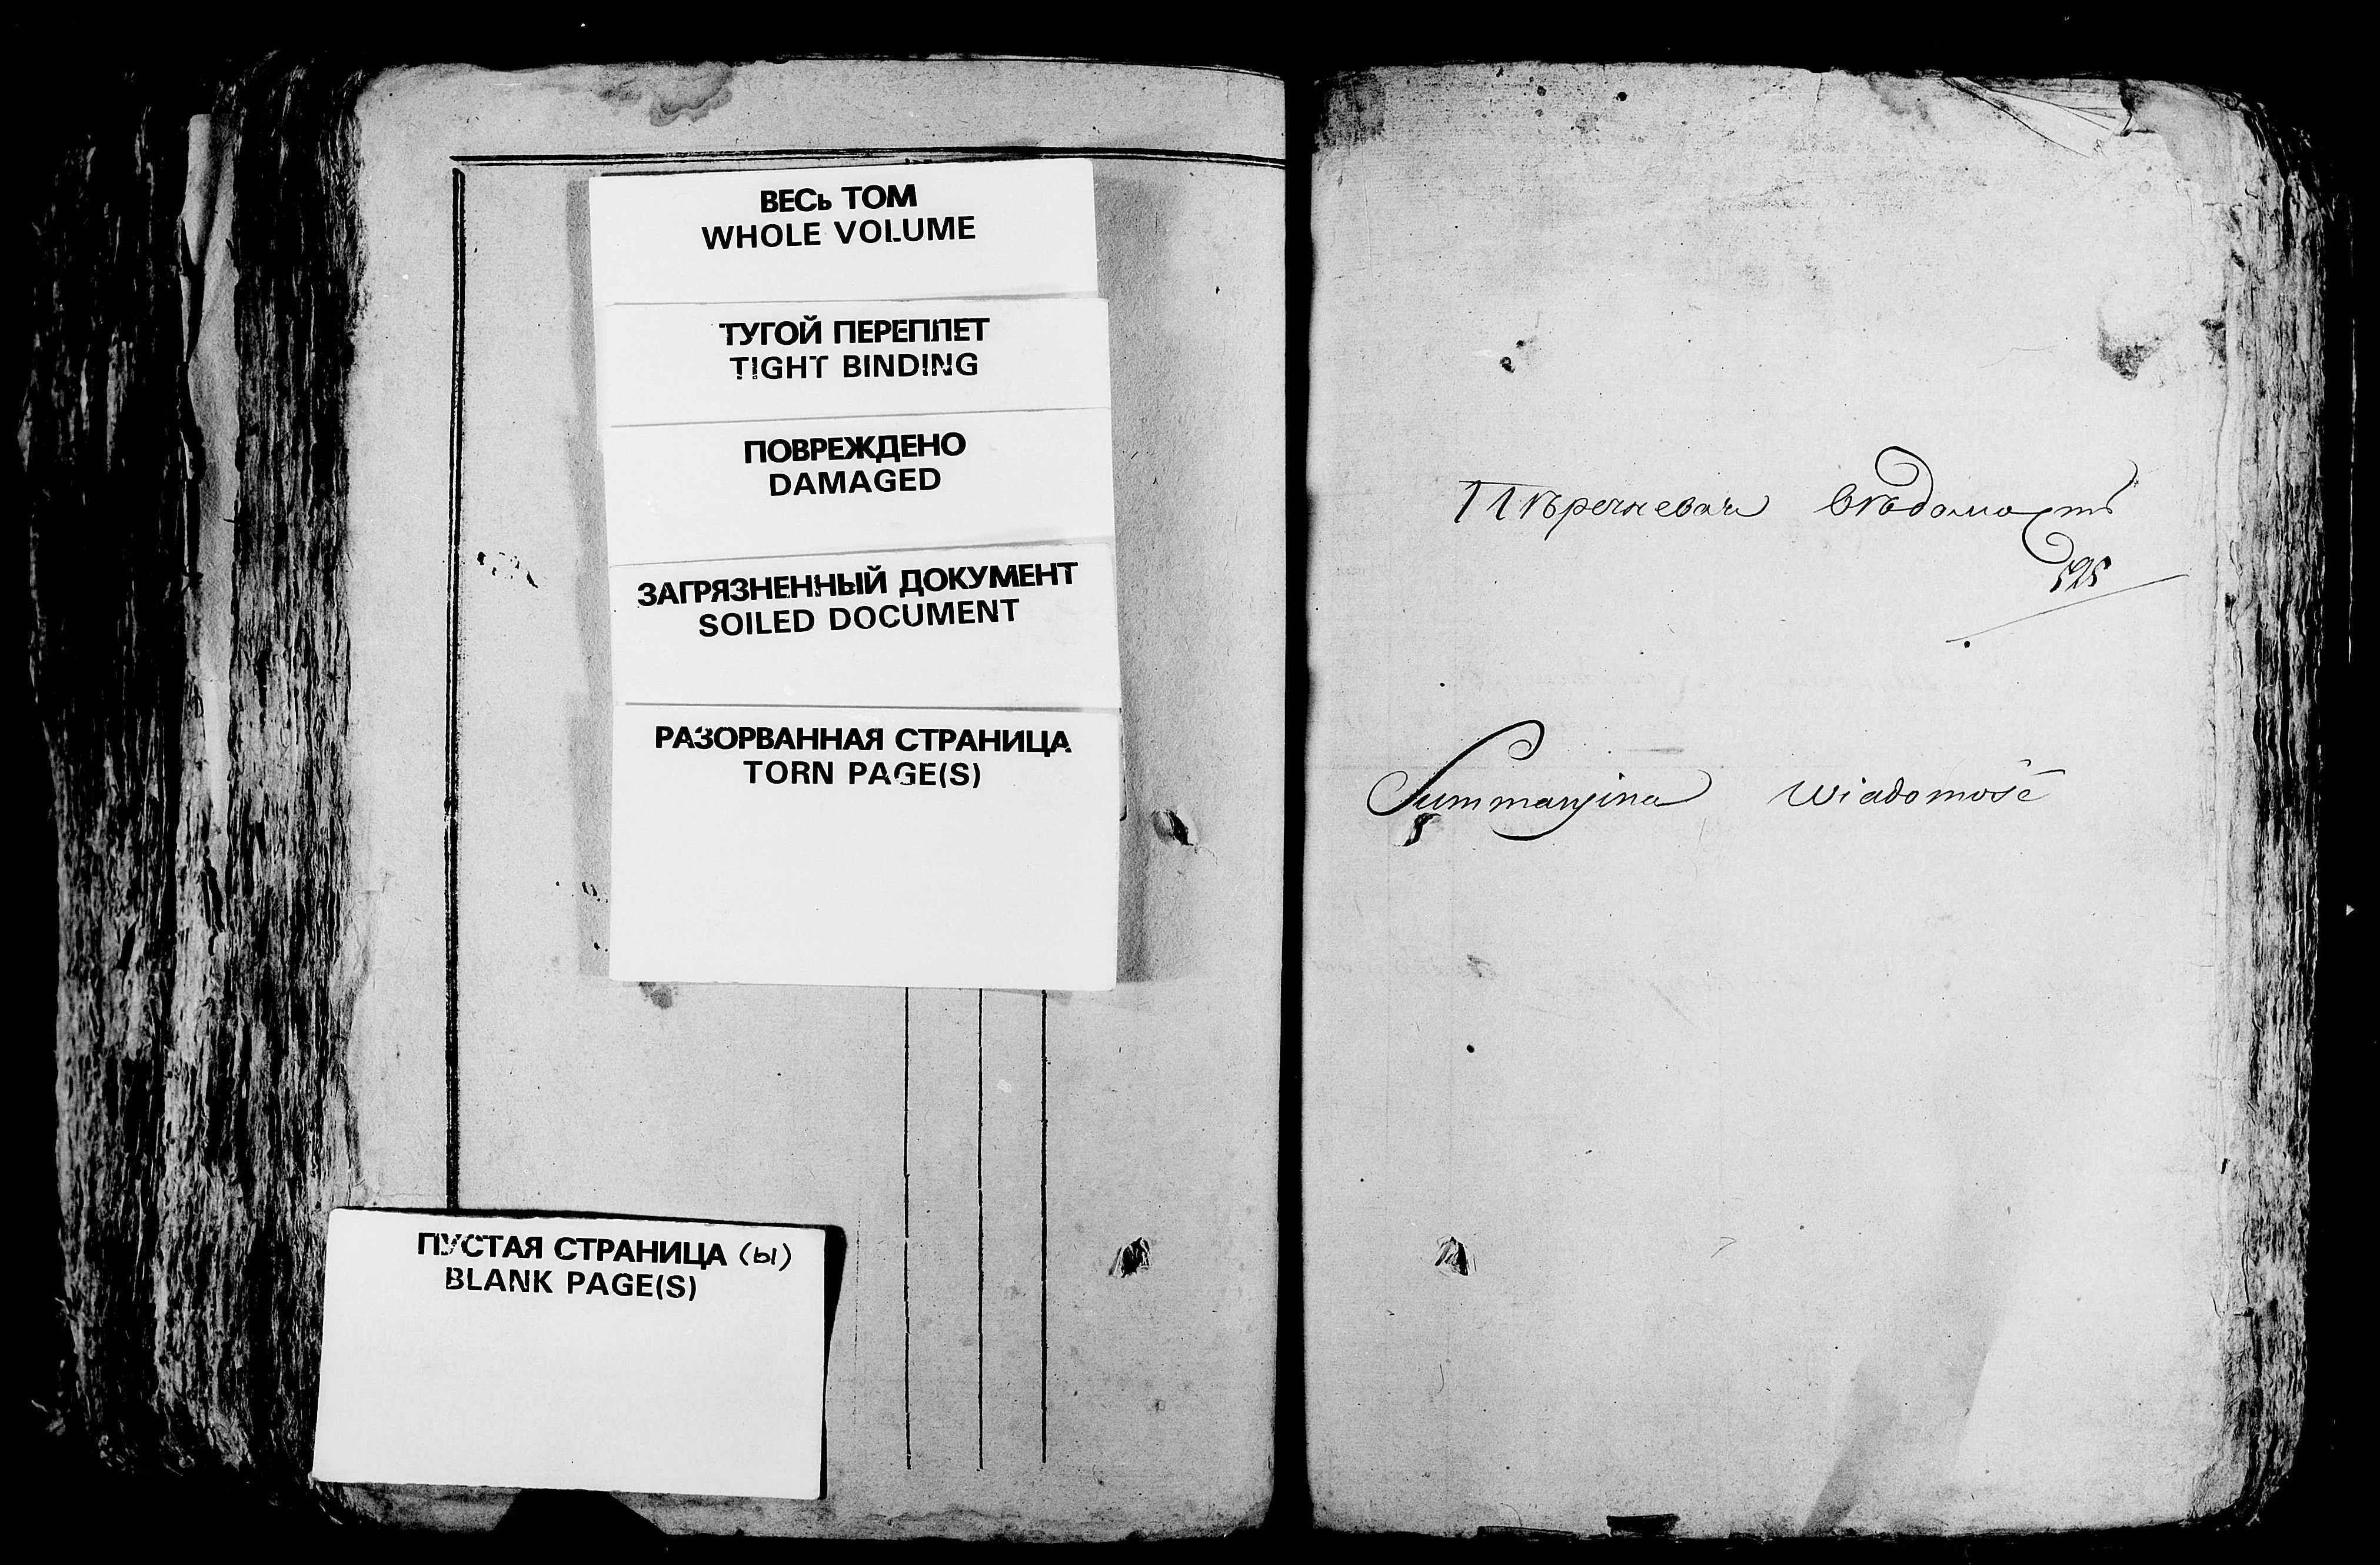 ВЕСЬ ТОМ
WHOLE VOLUME
ТУГОЙ ПЕРЕПЛЕТ
TIGHT BINDING
ПОВРЕЖДЕНО
DAMAGED
ЗАГРЯЗНЕННЫЙ ДОКУМЕНТ
SOILED DOCUMENT
РАЗОРВАННАЯ СТРАНИЦА
TORN PAGE(S)
ПУСТАЯ СТРАНИЦА (Ы)
BLANK PAGE(S)
Пѣречневая вѣдомость
Summaryina wiadomość